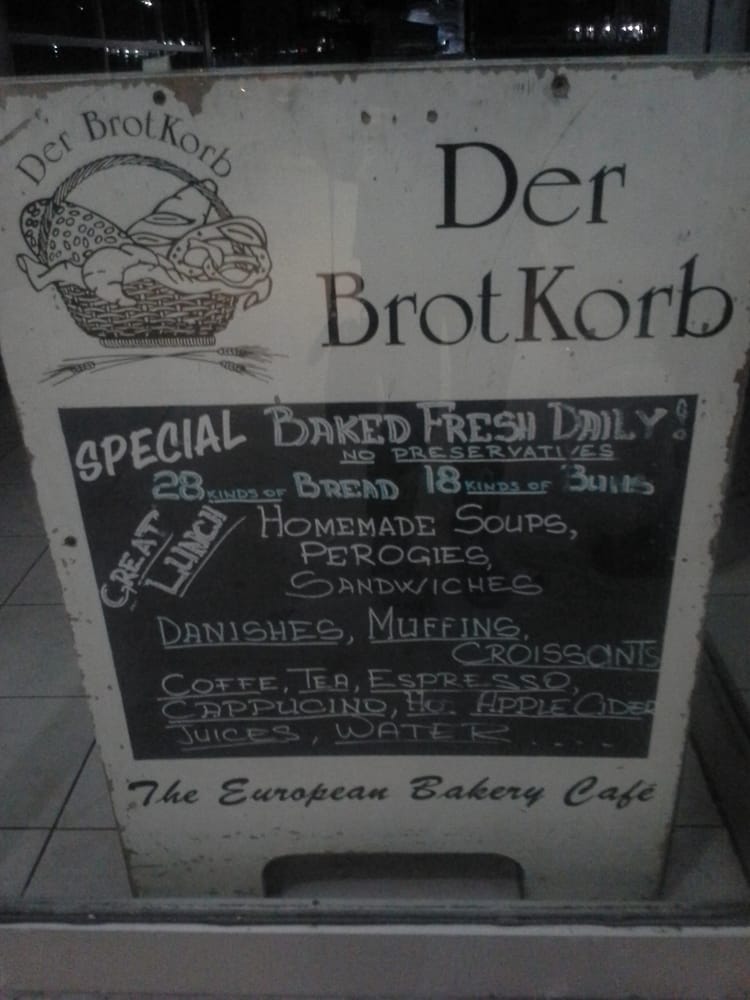 Der BrotKorb
Der
BrotKorb
SPECIAL BAKED FRESH DAILY!
NO PRESERVATIVES
28 KINDS OF BREAD 18 KINDS OF BUNS
GREAT
LUNCH
HOMEMADE SOUPS,
PEROGIES,
SANDWICHES
DANISHES, MUFFINS,
CROISSANTS
COFFE, TEA, ESPRESSO,
CAPPUCINO, APPLE CIDER
JUICES, WATER ....
The European Bakery Café